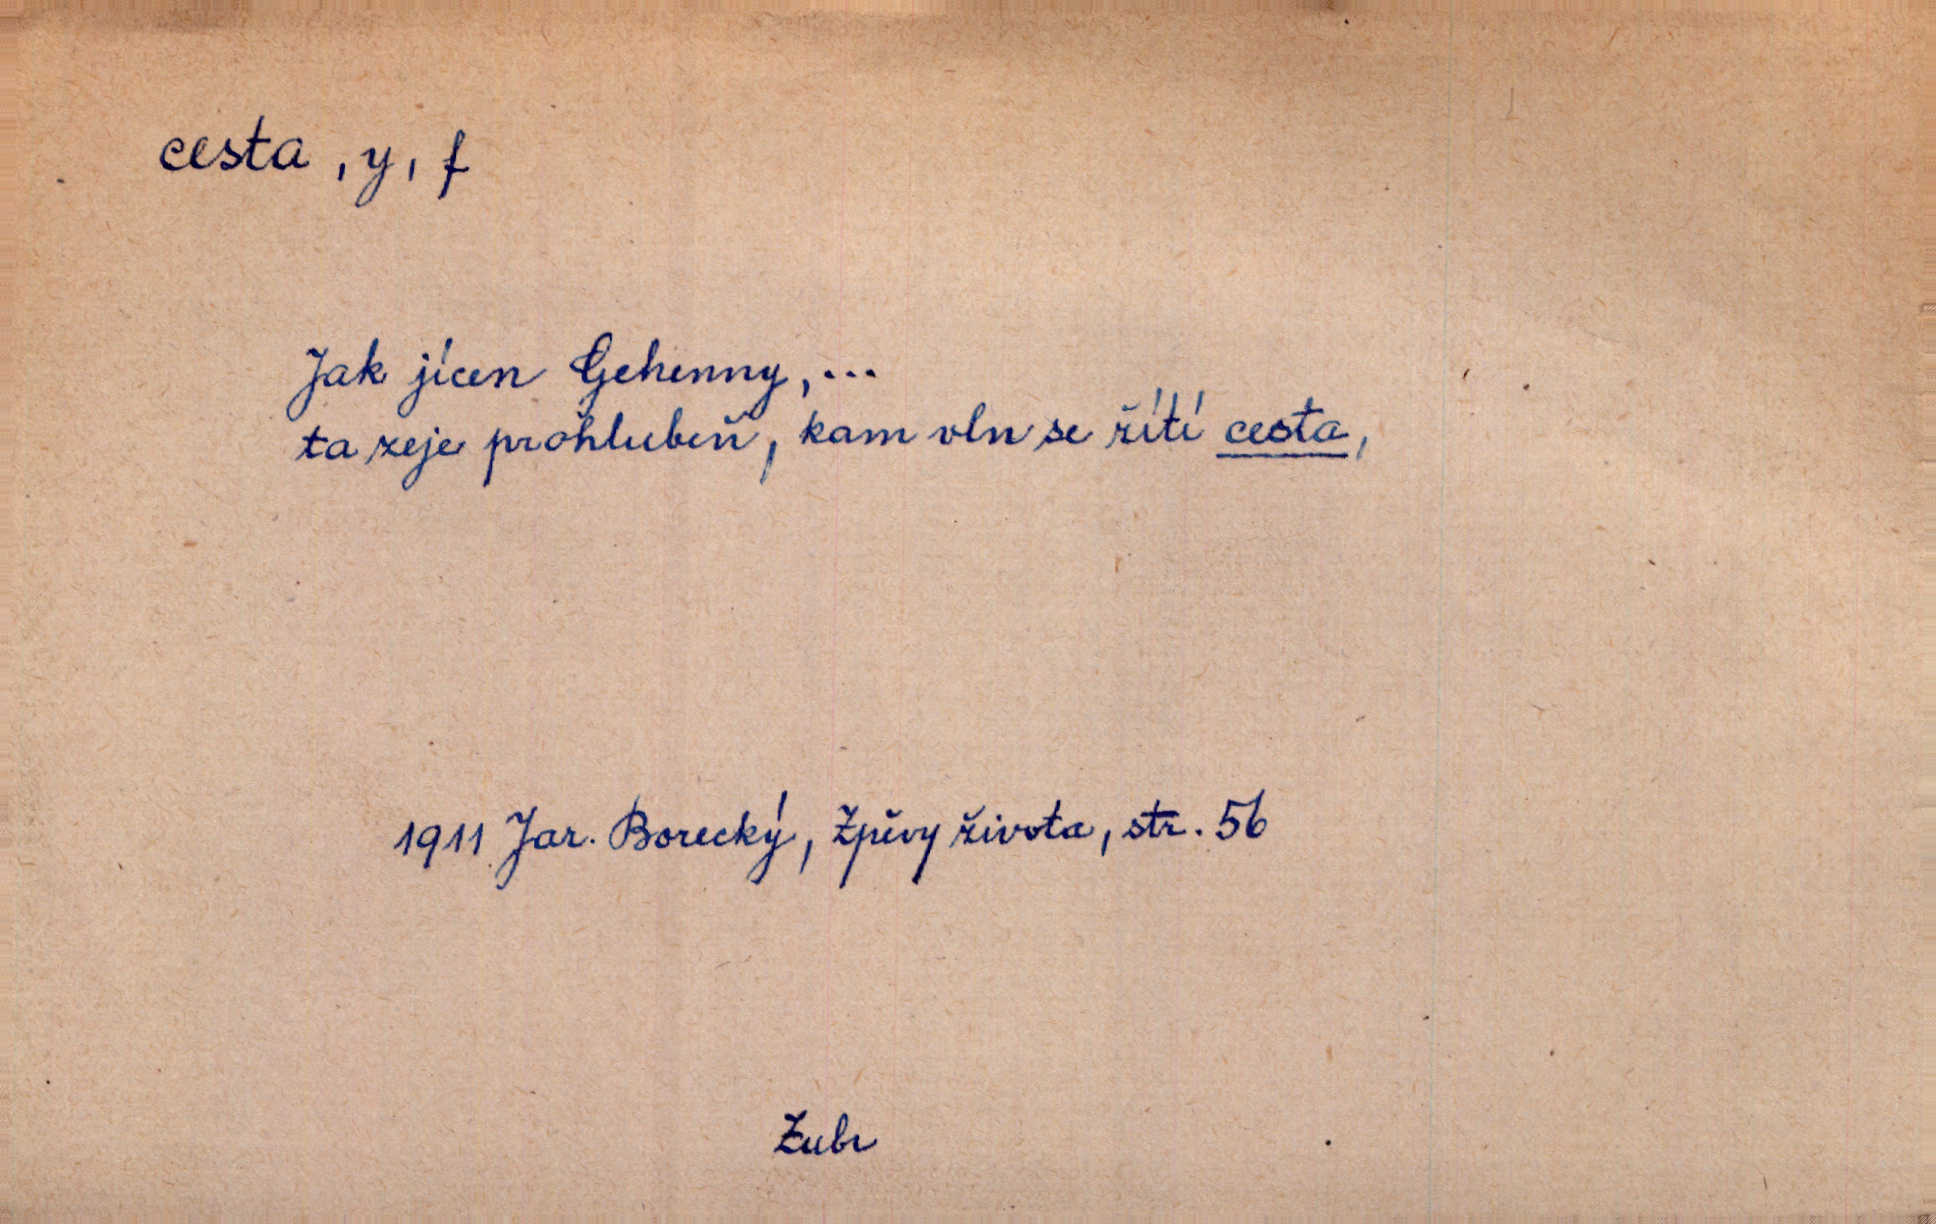 cesta, y, f
Jak jícen Gehenny, ...
ta zeje prohlubeň, kam vln se řítí cesta,
1911 Jar. Borecký, Zpěvy života, str. 56
Zubr